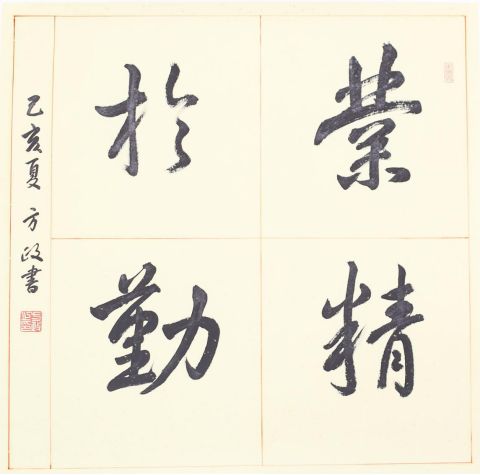 業精
於勤
己亥夏 方政書